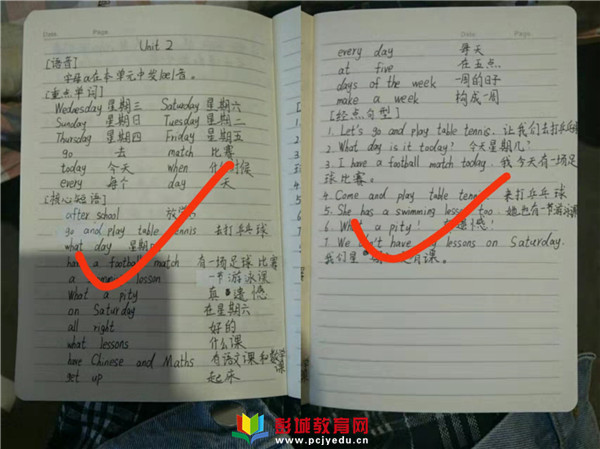 Date. Page.
Unit 2
[语音]
字母a在本单元中发/ei/音。
[重点单词]
Wednesday 星期三 Saturday 星期六
Sunday 星期日 Tuesday 星期二
Thursday 星期四 Friday 星期五
go 去 match 比赛
today 今天 when 什么时候
every 每个 day 天
[核心短语]
after school 放学
go and play table tennis 去打乒乓球
what day 星期
have a football match 有一场足球比赛
a lesson 一节游泳课
What a pity 真遗憾
on Saturday 在星期六
all right 好的
what lessons 什么课
have Chinese and Maths 有语文课和数学课
get up 起床
Date. Page.
every day 每天
at five 在五点.
days of the week 一周的日子
make a week 构成一周
[经点句型]
1. Let's go and play table tennis. 让我们去打乒乓球
2. What day is it today? 今天星期几?
3. I have a football match today. 我今天有一场足
球比赛。
4. Come and play table tennis 来打乒乓球
5. She has a swimming lesson too. 她也有一节游泳课
6. What a pity! 遗憾!
7. We don't have lessons on Saturday.
我们星 有课。
彭城教育网
www.pcjyedu.cn